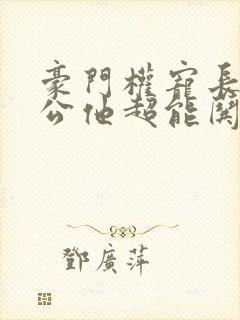 豪門權寵長
公他超能闖
鄧廣萍